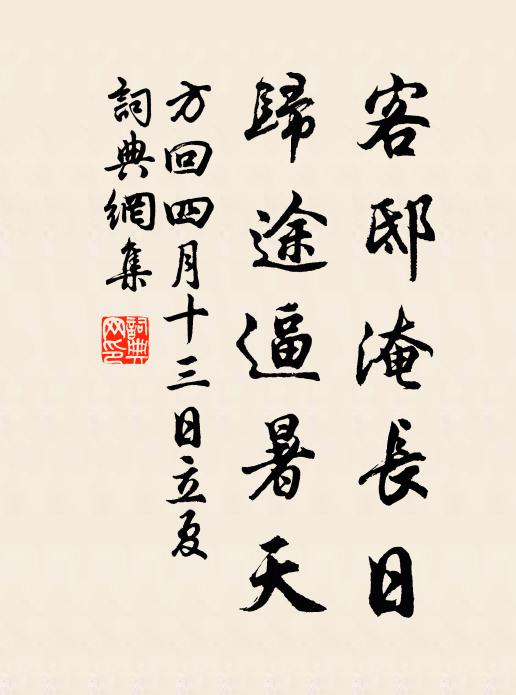 客邸淹長日
歸途逼暑天
方回四月十三日立夏
詞典網集
詞典网印